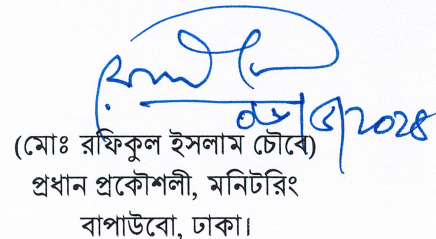 (মোঃ রফিকুল ইসলাম চৌবে)
প্রধান প্রকৌশলী, মনিটরিং
বাপাউবো, ঢাকা।